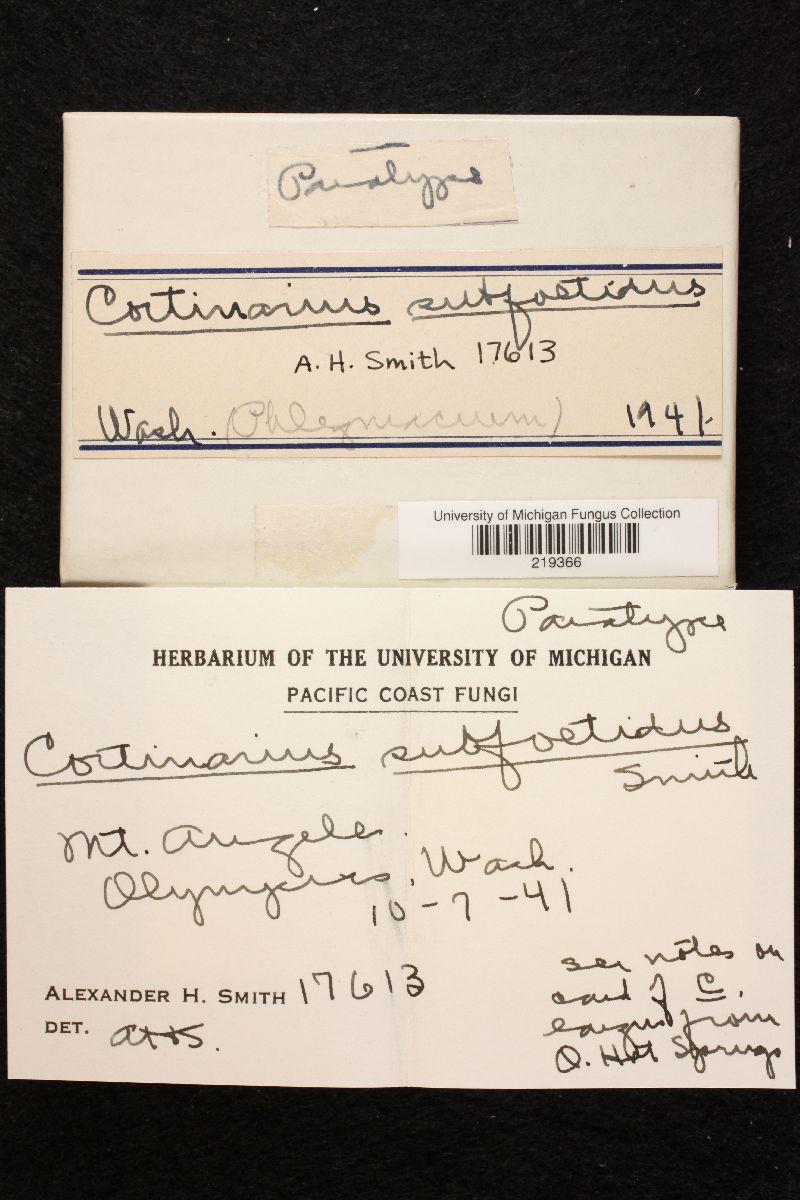 Paratype
Cortinarius subfoetidus
A. H. Smith 17613
Wash. (Phlegmacium) 1941
University of Michigan Fungus Collection
219366
Paratype
HERBARIUM OF THE UNIVERSITY OF MICHIGAN
PACIFIC COAST FUNGI
Cortinarius subfoetidus
Smith
Mt. Angeles.
Olympics, Wash.
10-7-41
ALEXANDER H. SMITH 17613
DET. AHS.
see notes on
card of C.
from
O. Hot Springs